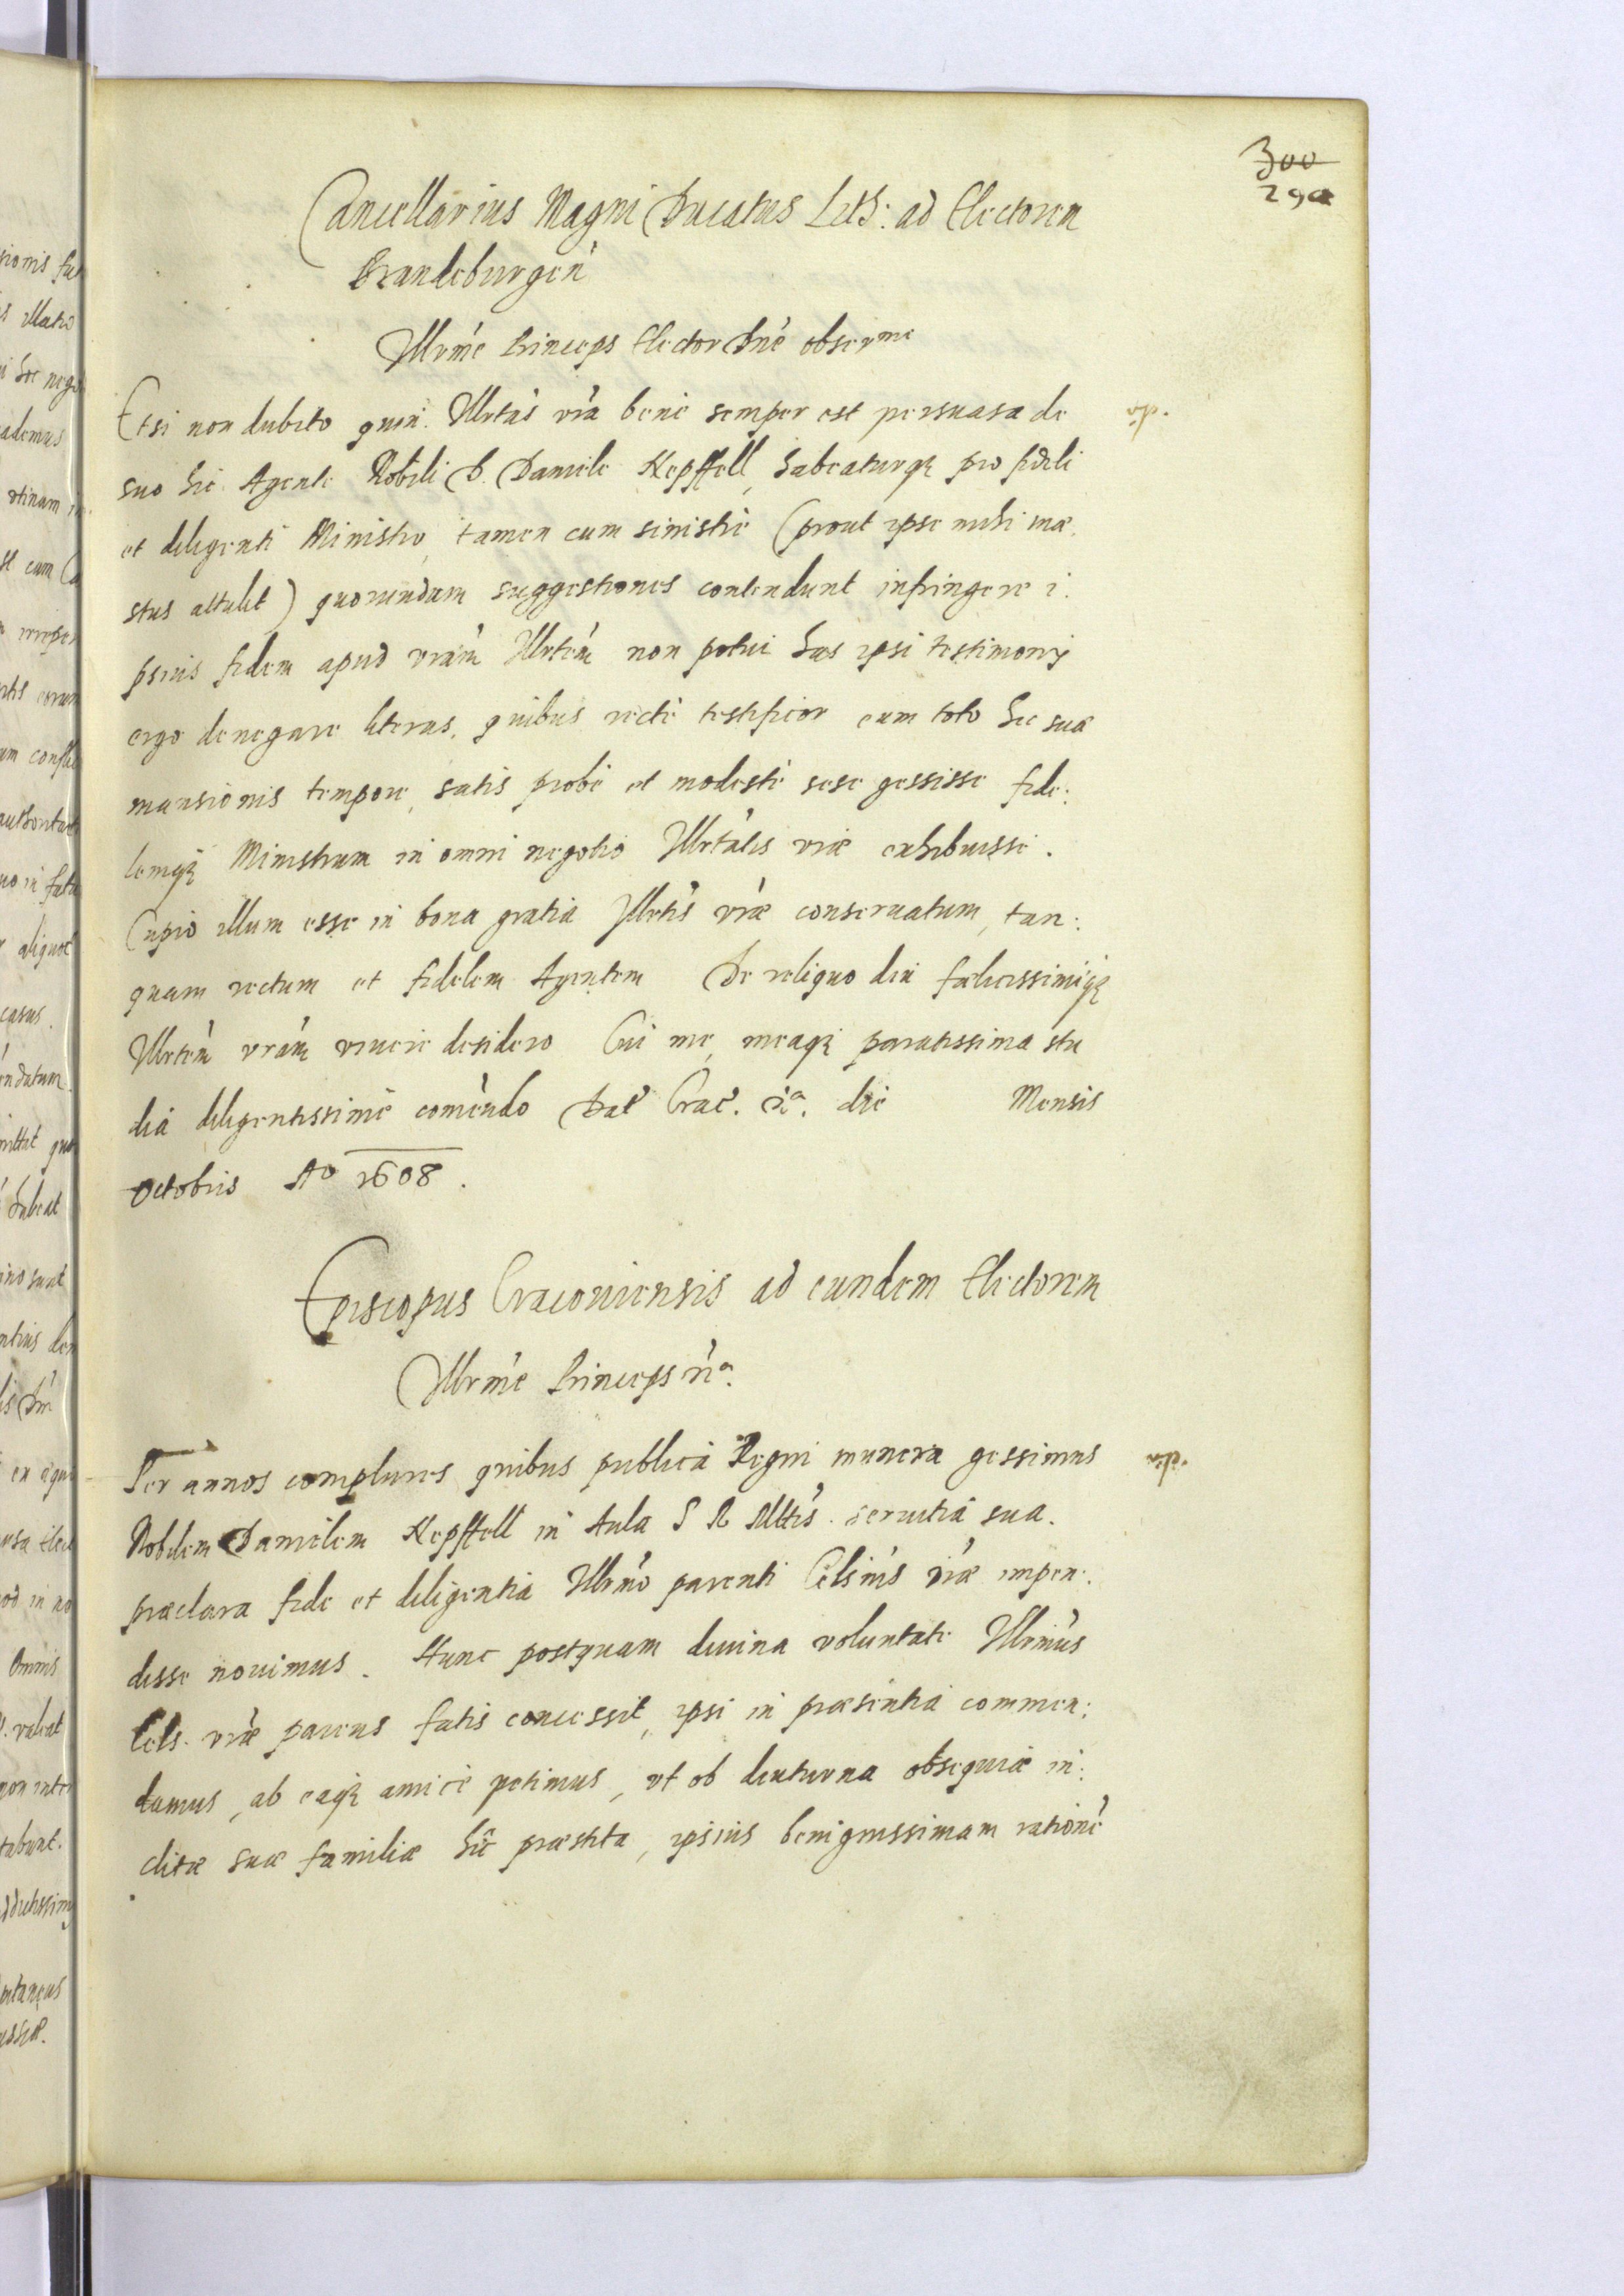 300
290
Cancellarius Magni Ducatus Lith: ad Electorem
Brandeburgen̄
Illrm̄e Princeps Elector Dn̄e obserme
Etsi non dubito quin Illrtās vrā bene semper est persuasa de
suo hic Agente Nobili D. Daniele Kepffell, habeaturqꝫ pro fideli
et diligenti Ministro, tamen cum sinistrè (prout ipse mihi mæ:
stus attulit) quorundam suggestiones contendunt infringere i:
psius fidem apud vrām Illrtēm non potui has ipsi testimonij
ergo denegare literas, quibus rectè testificor eum toto hic suæ
mansionis tempore, satis probè et modestè sese gessisse fide:
lemqꝫ Ministrum in omni negotio Illrtātis vrǣ exhibuisse.
Cupio illum esse in bona gratia Illrtīs vrǣ conseruatum, tan:
quam rectum et fidelem Agentem De reliquo diu fœlicissimèqꝫ
Illrtēm vrām viuere desidero Cui me, meaqꝫ paratissima stu
dia diligentissimè comēndo Dat̄ Crac̄. die Mensis
Octobris Ao 1608.
Episcopus Cracouiensis ad eundem Electorem
Illrm̄e Princeps
Per annos complures quibus publica Regni munera gessimus
Nobilem Danielem Kepffell in Aula S R Mttīs seruitia sua
præclara fide et diligentia Illrm̄o parenti Celsnīs vrǣ impen:
disse nouimus. Hunc postquam diuina voluntate Illrmūs
Cels. vrǣ parens fatis concessit, ipsi in præsentia commen:
damus, ab eaqꝫ amicè petimus, vt ob diuturna obsequia in:
clitæ suæ familiæ hîc præstita, ipsius benignissimam rationē